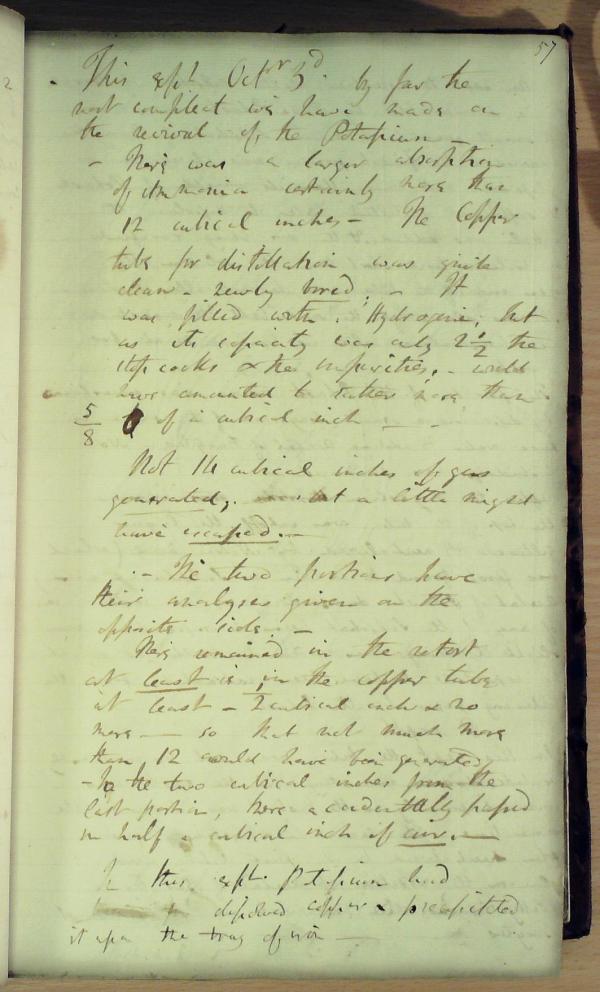 57
This expt. Octr 3d. by far the
most compleat we have made on
the revival of the Potasium —
– There was a larger absorption
of ammonia certainly more than
12 cubical inches – The Copper
tube for distillation was quite
clean – newly bored; – It
was filled with Hydrogene; but
as its capacity was only 2 1/2 the
stop cocks & the impurities, – would
have amounted to rather more than
5/8 of a cubical inch – –
Not 14 cubical inches of gas
generated; but a little might
have escaped. —
– The two portions have
their analyses given on the
opposite side. –
There remained in the retort
at least & in the copper tube
at least – 1/2 cubical inch & 20
more — so that not much more
than 12 could have been generated
– In the two cubical inches from the
last portion, there accidentally passed
in half a cubical inch of air. —
In this expt. Potasium had
dissolved copper & precipitated
it upon the tray of iron —